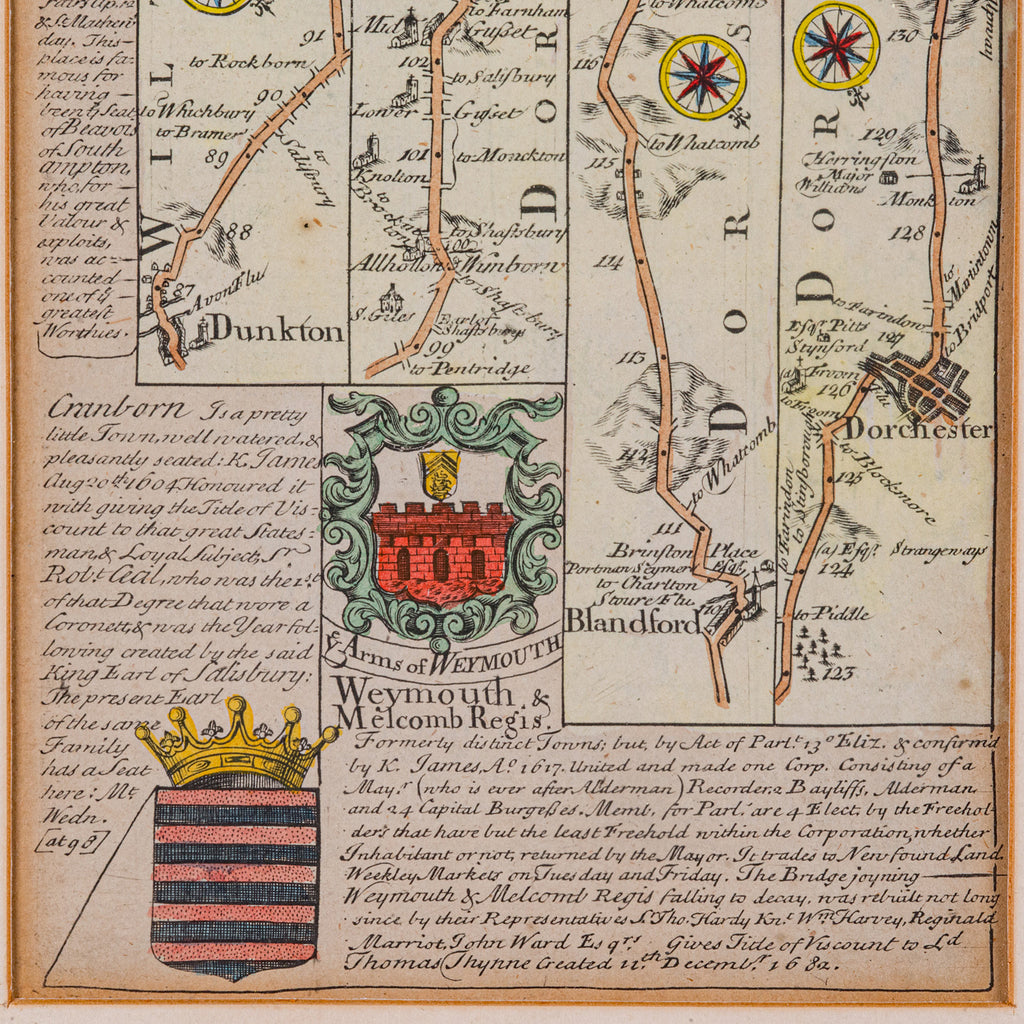 & St. Mathew
day. This
place is fa-
mous for
having
been ye Seat
of Beavois
of South
ampton,
who for
his great
Valour &
exploits,
was ac-
counted
one of ye
greatest
Worthies.
WILT
91
to Rockborn
90
to Whichbury
to Bramer
89
to Salisbury
88
87
Avon Flu
Dunkton
to Farnham
Mid
Gusset
102
to Salisbury
Lower Gusset
101
to Monckton
Knolton
to Shaftsbury
100
Allhollon Wynborn
to Shaftsbury
St. Giles
Earl of
Shaftsbury
99
to Pentridge
DOR
to Whatcomb
116
to Whatcomb
115
114
113
112
to Whatcomb
111
Brinston Place
Portman Seymer Esqr.
to Charlton
Stoure Flu
110
Blandford
DORS
130
129
Herringston
Major
Williams
Monkton
128
to Martintown
to Bridport
to Farindon
Esqr. Pitts
Stynsford
127
(a) Froom
126
Flu
Dorchester
125
to Blockmore
to Farrindon
(a) Esqr. Strangeways
124
to Piddle
123
DOR
Cranborn Is a pretty
little Town, well watered, &
pleasantly seated: K. James
Aug 20th. 1604 Honoured it
with giving the Title of Vis-
count to that great States-
man, & Loyal Subject, Sr.
Robt. Cecil, who was the 1st.
of that Degree that wore a
Coronett, & was the Year fol-
lowing created by the said
King Earl of Salisbury:
The present Earl
of the same
Family
has a Seat
here: Mt.
Wedn.
[at 98]
ye Arms of WEYMOUTH
Weymouth &
Melcomb Regis.
Formerly distinct Towns; but, by Act of Parlt. 13o Eliz. & confirm'd
by K. James, Ao 1617. United and made one Corp. Consisting of a
Mayr. (who is ever after Alderman) Recorder, 2 Bayliffs, Alderman
and 24 Capital Burgeßes. Memb. for Parl. are 4 Elect. by the Freehol-
ders that have but the least Freehold within the Corporation, whether
Inhabitant or not, returned by the Mayor. It trades to New found Land.
Weekley Markets on Tuesday and Friday. The Bridge joyning
Weymouth & Melcomb Regis falling to decay, was rebuilt not long
since by their Representatives Sr. Tho. Hardy Knt. Wm. Harvey, Reginald
Marriot, John Ward Esqrs. Gives Title of Viscount to Ld.
Thomas Thynne Created 11th. Decembr. 1682.